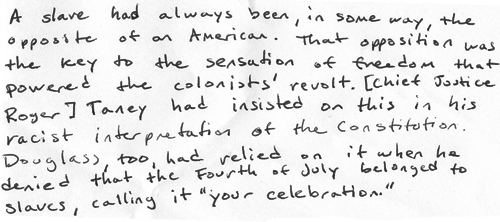 A slave had always been, in some way, the
opposite of an American. That opposition was
the key to the sensation of freedom that
powered the colonists' revolt. [Chief Justice
Roger] Taney had insisted on this in his
racist interpretation of the Constitution.
Douglass, too, had relied on it when he
denied that the Fourth of July belonged to
slaves, calling it "your celebration."